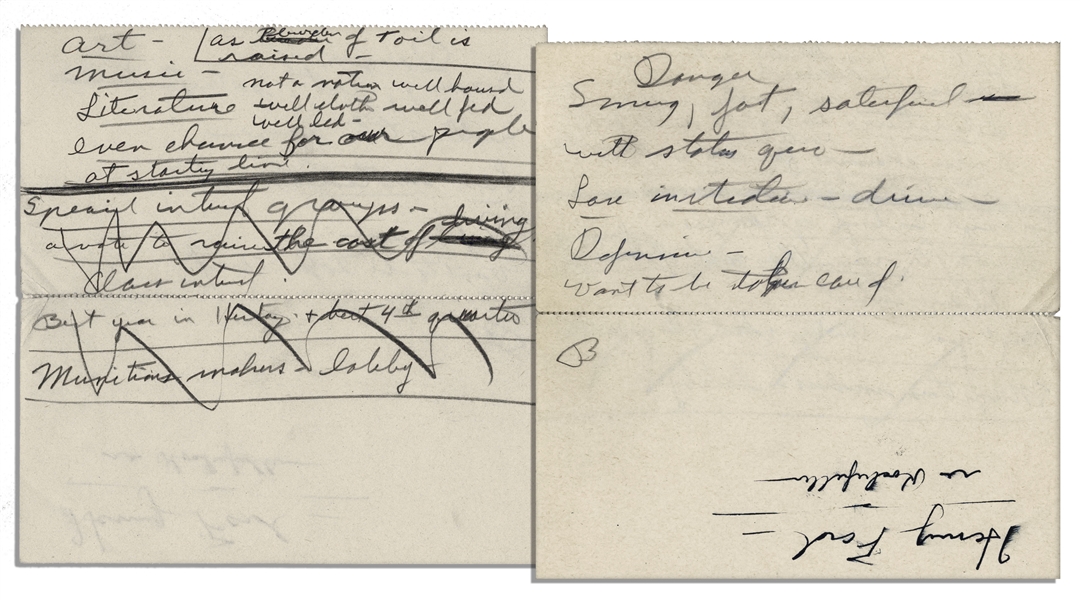 art - as burden of toil is
raised -
music - not a nation well housed
Literature well cloth well fed
well led -
even chance for our people
at starting line.
Special interest groups -
a vote to raise the cost of living
Class interest.
Best year in History. + best 4th quarter
Munitions makers - lobby
Danger
Smug, fat, satisfied
with status quo -
Lose - drive -
Defensive -
Want to be taken care of.
B
vs Rockefeller
Henry Ford -